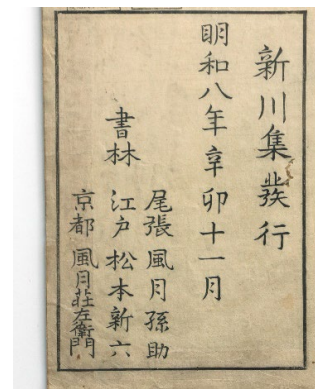 新川集發行
明和八年辛卯十一月
書林
尾張風月孫助
江戸松本新六
京都風月荘左衛門